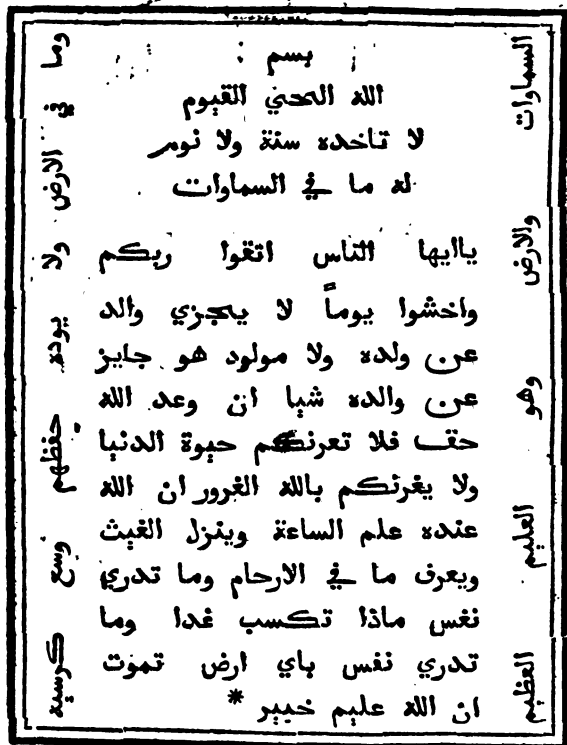 بسم :
الله الحني القيوم
لا تاخده سنة ولا نوم
له ما في السماوات
ياايها الناس اتقوا ربكم
واخشوا يوماً لا يجزي والد
عن ولده ولا مولود هو جايز
عن والده شيا ان وعد الله
حقا فلا تعرنكم حيوة الدنيا
ولا يغرنكم بالله الغرور ان الله
عنده علم الساعة وينزل الغيث
ويعرف ما في الارحام وما تدري
نفس ماذا تكسب غدا وما
تدري نفس باي ارض تموت
ان الله عليم خبير *
السماوات والارض وهو العليم العظيم
وما في الارض ولا يوده حفظهم وسع كرسية